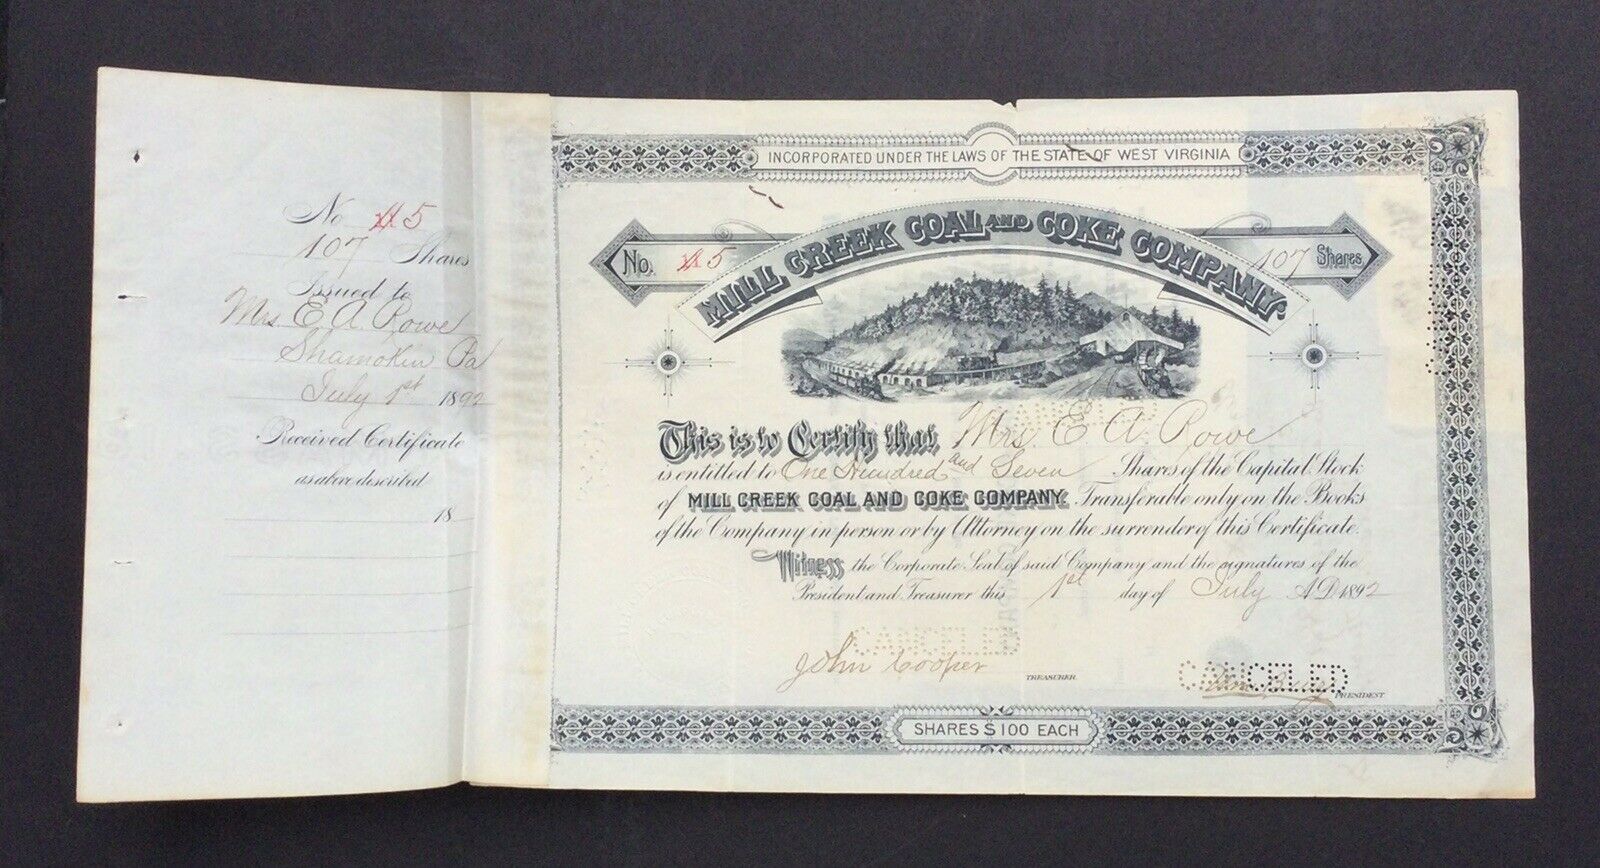 No 5
107 Shares
Issued to
Mrs. E. A. Rowe
Shamokin Pa
July 1st 1892
Received Certificate
as above described
18
INCORPORATED UNDER THE LAWS OF THE STATE OF WEST VIRGINIA
MILL CREEK COAL AND COKE COMPANY.
No. 5
107 Shares
This is to Certify that Mrs. E. A. Rowe
is entitled to One Hundred and Seven Shares of the Capital Stock
of MILL CREEK COAL AND COKE COMPANY. Transferable only on the Books
of the Company in person or by Attorney on the surrender of this Certificate.
Witness the Corporate Seal of said Company and the signatures of the
President and Treasurer this 1st day of July A.D. 1892
CANCELED
CANCELED
John Cooper TREASURER.
PRESIDENT
SHARES $100 EACH